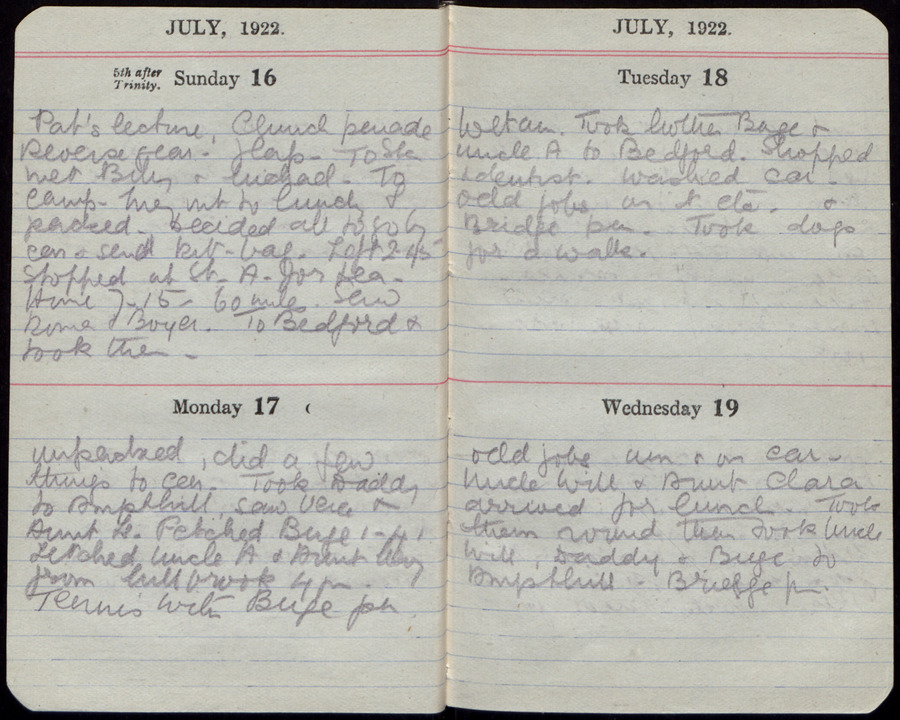 JULY, 1922.
5th after Trinity. Sunday 16
Pat's lecture, Church parade
Reverse gear. Flap. To Stn
met Billy & Michael. To
camp. They out to lunch &
packed. Decided all to go by
car & send kit-bag. Left 2-45
Stopped at St. A. for tea.
Home 7-15 60 miles. Saw
Roma & Boyer. To Bedford &
took them
Monday 17
unpacked, did a few
things to car. Took Daddy
to Ampthill, saw Vera &
Aunt L. Fetched Buge 1-
Fetched Uncle A & Aunt
from Millbrook 4 pm.
Tennis with Buge pm.
JULY, 1922.
Tuesday 18
Wet am. Took Mother Buge &
Uncle A to Bedford. Shopped
& dentist. Washed car.
odd jobs on it etc. &
Bridge pm. Took dogs
for a walk.
Wednesday 19
odd jobs am & on car.
Uncle Will & Aunt Clara
arrived for lunch. Took
them round then took Uncle
Will, Daddy & Buge to
Ampthill. Bridge pm.